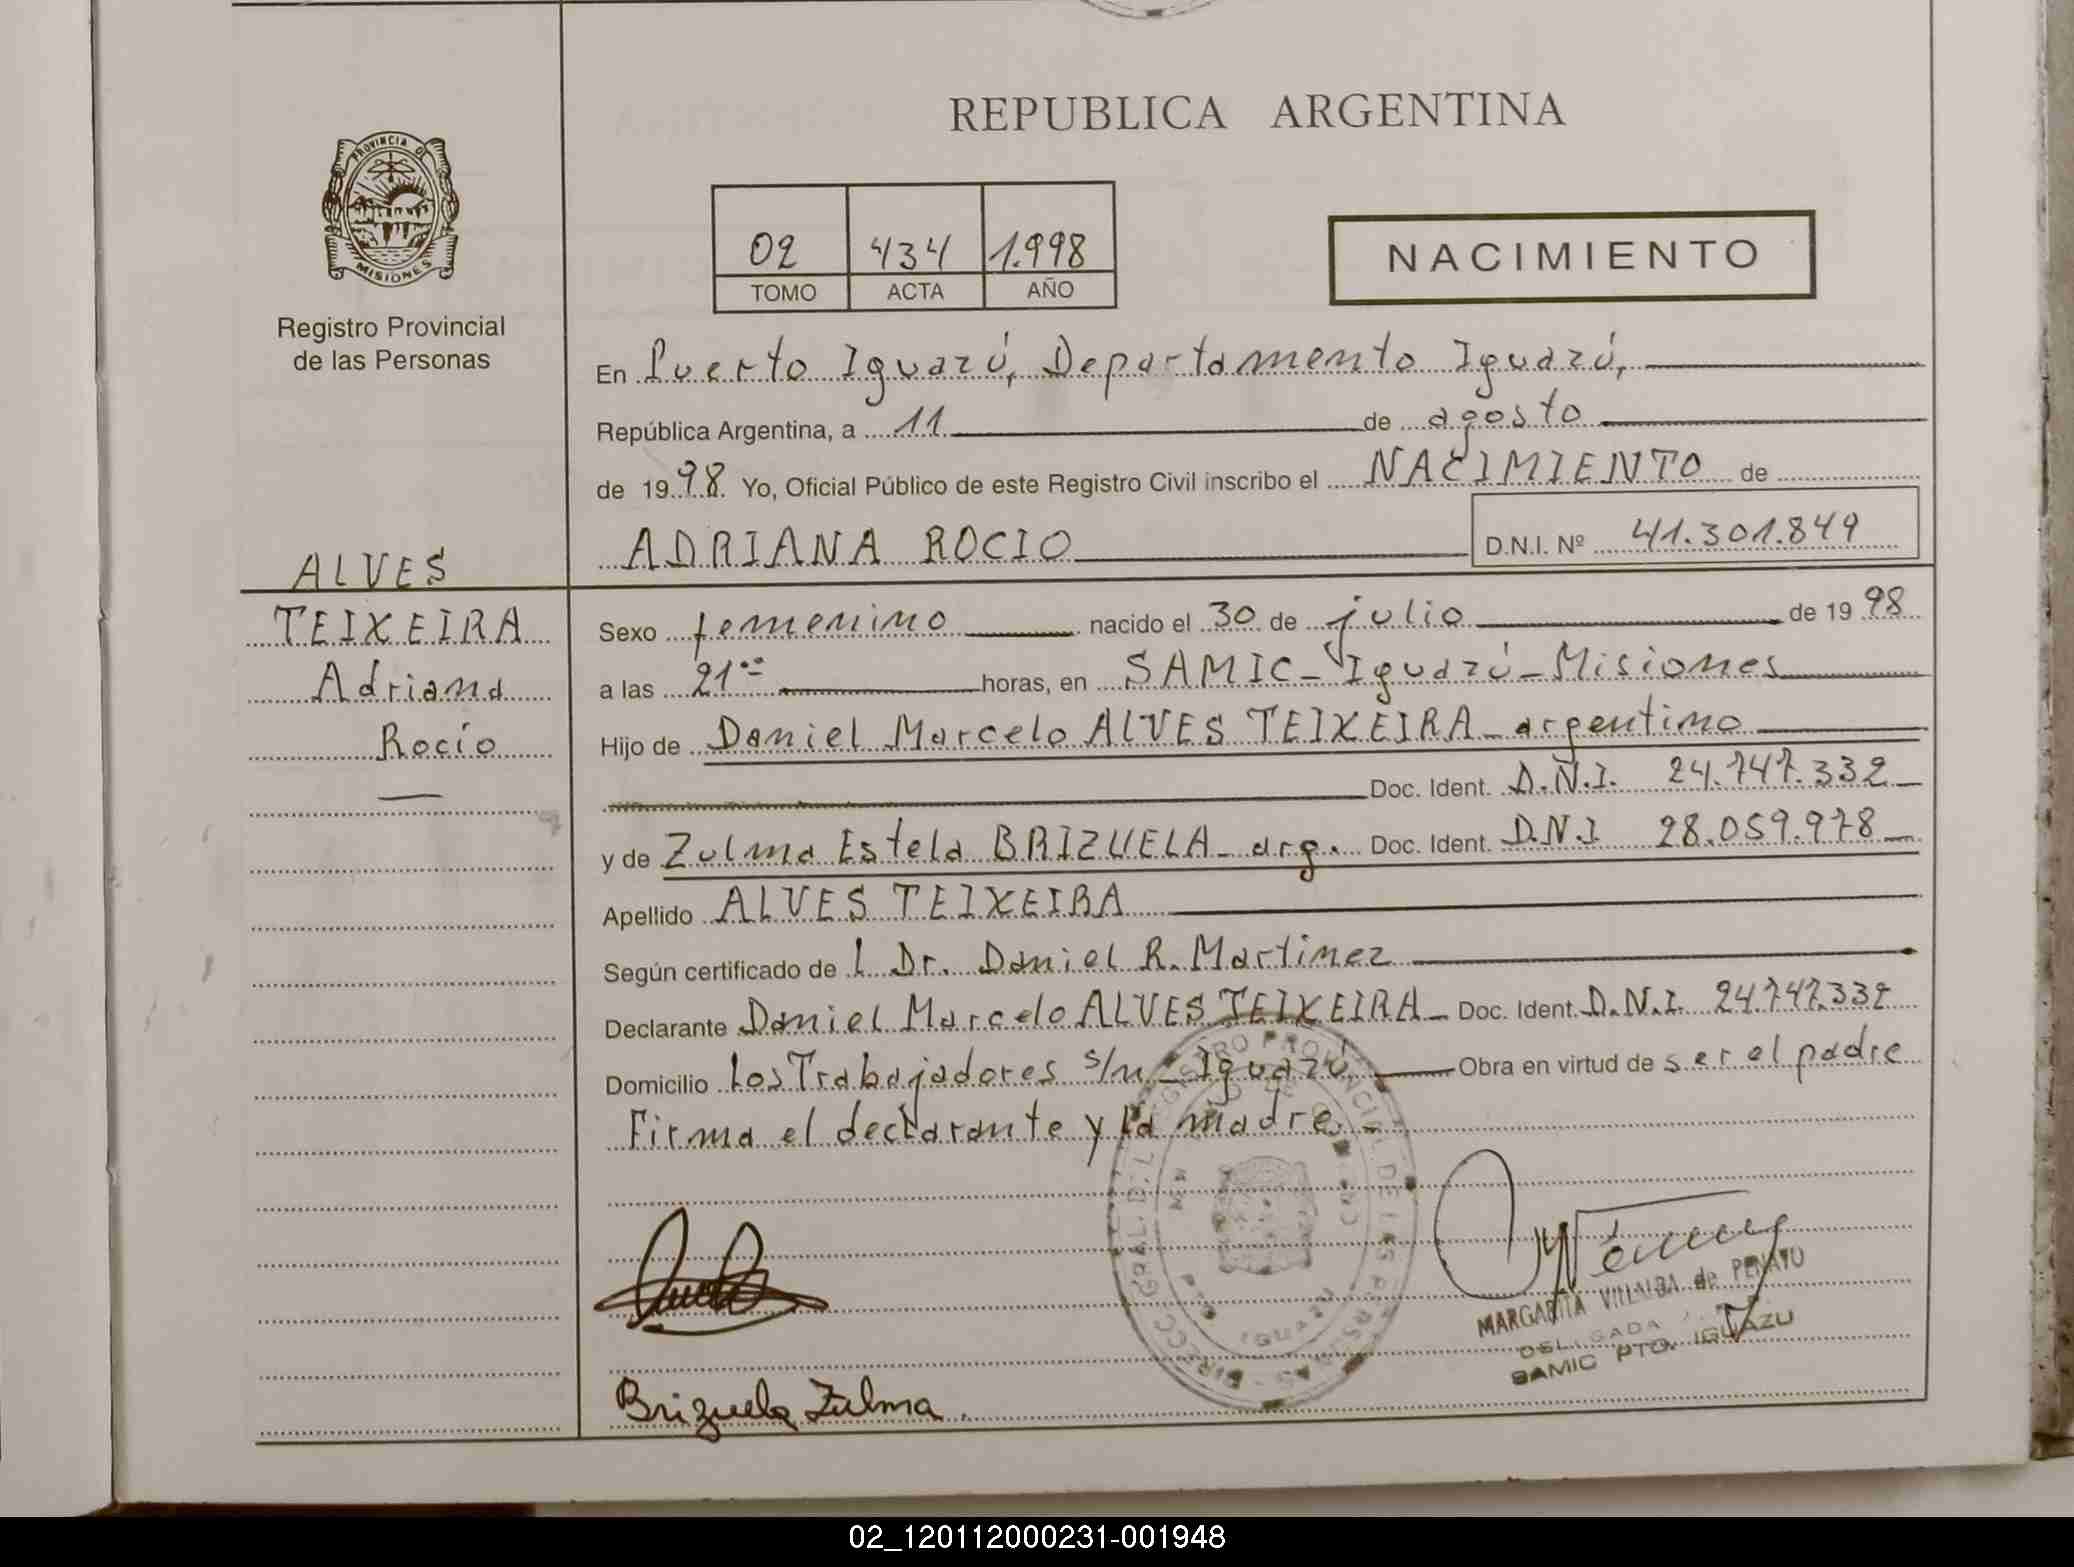 REPUBLICA ARGENTINA
PROVINCIA DE
MISIONES
Registro Provincial
de las Personas
02 434 1.998
TOMO ACTA AÑO
NACIMIENTO
En Puerto Iguazú, Departamento Iguazú,
República Argentina, a 11 de agosto
de 1998. Yo, Oficial Público de este Registro Civil inscribo el NACIMIENTO de
ADRIANA ROCIO D.N.I. Nº 41.301.849
ALVES
TEIXEIRA
Adriana
Rocío
Sexo femenino nacido el 30 de julio de 1998
a las 21ºº horas, en SAMIC - Iguazú - Misiones
Hijo de Daniel Marcelo ALVES TEIXEIRA - argentino
Doc. Ident. D.N.I. 24.747.332
y de Zulma Estela BRIZUELA - arg. Doc. Ident. D.N.I 28.059.978
Apellido ALVES TEIXEIRA
Según certificado de l Dr. Daniel R. Martinez
Declarante Daniel Marcelo ALVES TEIXEIRA - Doc. Ident. D.N.I. 24.747.332
Domicilio Los Trabajadores s/n - Iguazú Obra en virtud de ser el padre
Firma el declarante y la madre. -
MARGARITA VILLALBA de PENAYO
DELEGADA
SAMIC PTO. IGUAZU
Brizuela Zulma.
02_120112000231-001948